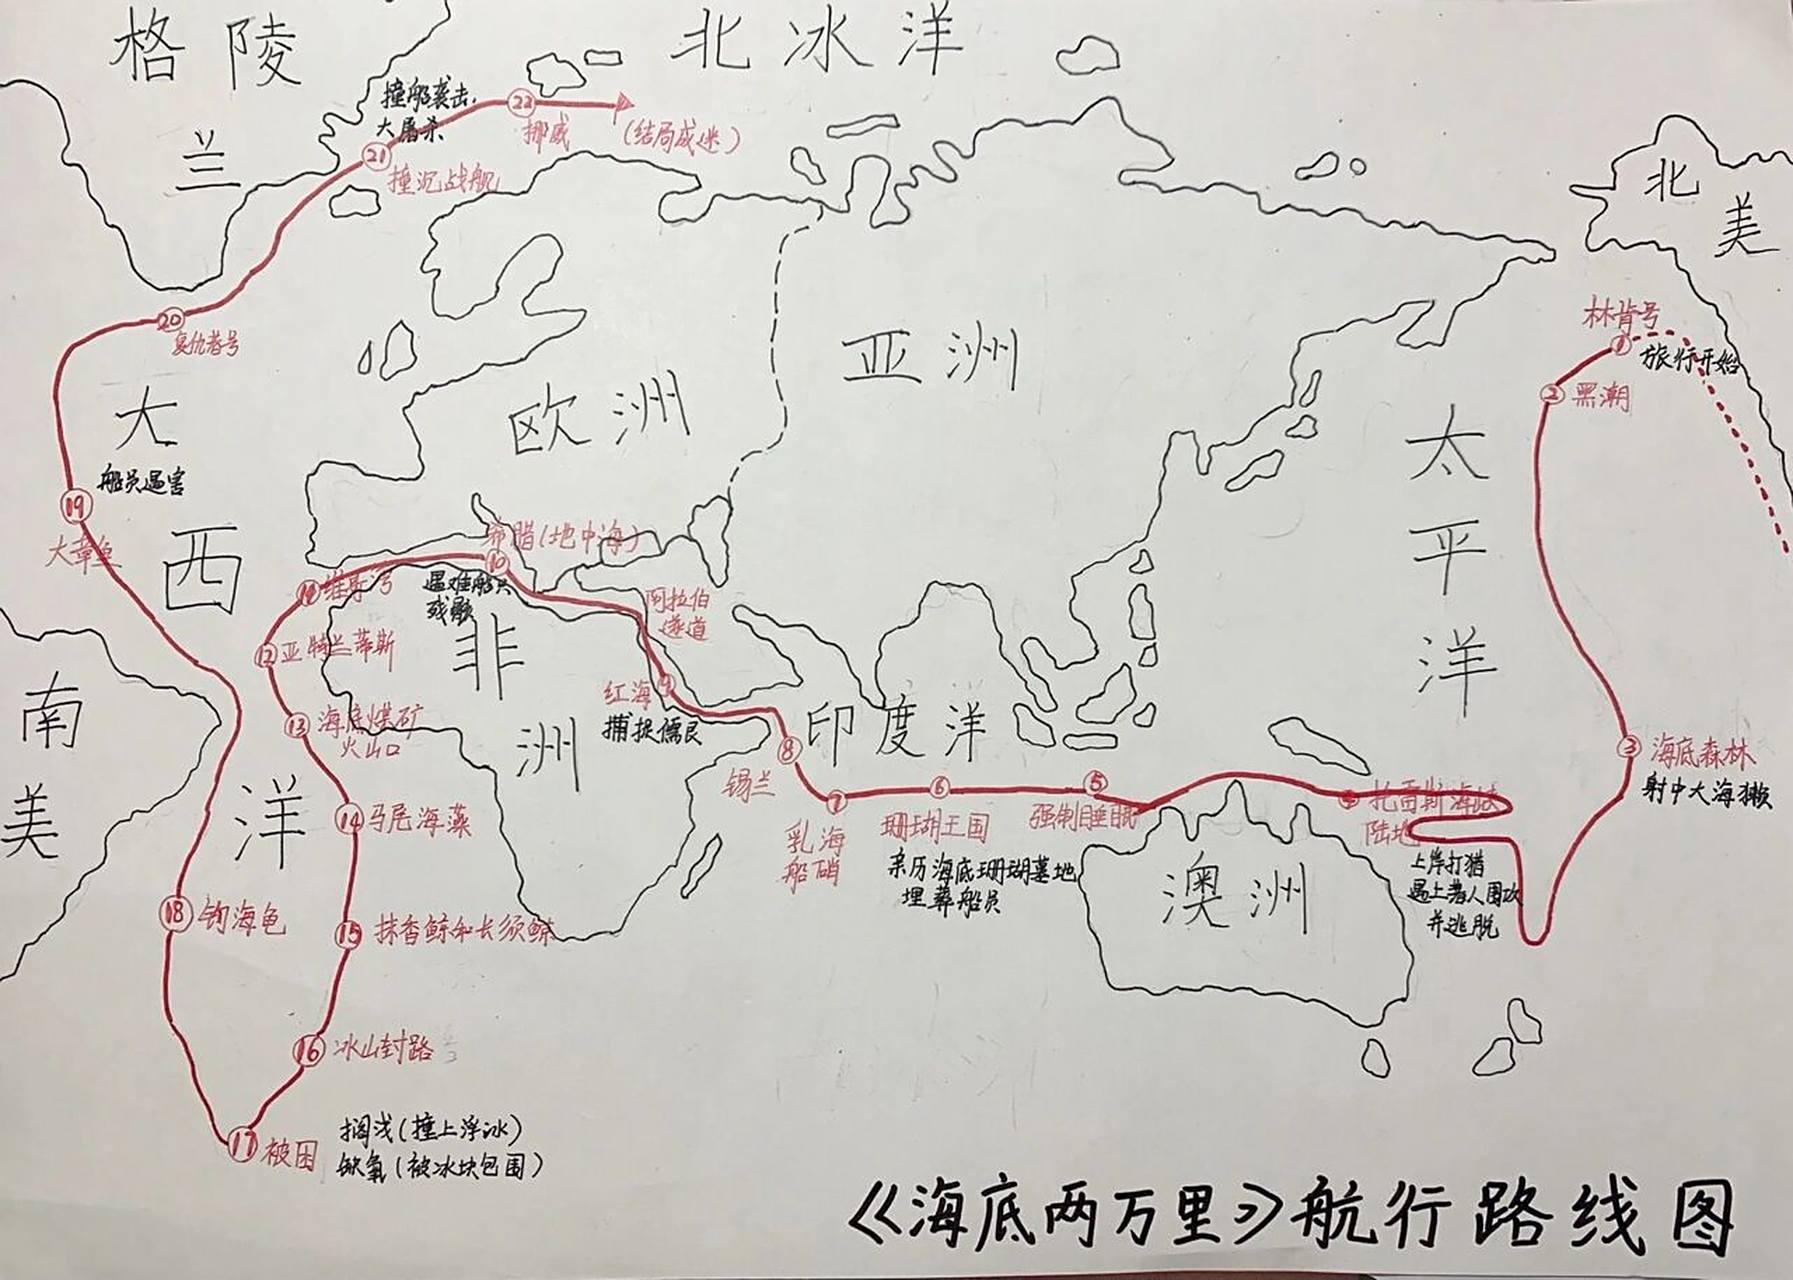 格陵
兰
北冰洋
北
美
撞船袭击,
大屠杀
22
挪威
(结局成迷)
21
撞沉战舰
20
复仇者号
大
西
洋
船员遇害
19
大章鱼
欧洲
亚洲
太
平
洋
林肯号
1
旅行开始
2 黑潮
3 海底森林
射中大海獭
4 托雷斯海峡
陆地
上岸打猎
遇上着人围攻
并逃脱
5
强制睡眠
6
珊瑚王国
亲历海底珊瑚墓地
埋葬船员
7
乳海
船硝
8
锡兰
印度洋
9
红海
捕捉儒艮
阿拉伯
遂道
希腊(地中海)
10
遇难船只
残骸
非
洲
11 维哥湾
12 亚特兰蒂斯
13 海底煤矿
火山口
14 马尾海藻
15 抹香鲸和长须鲸
16 冰山封路
17 被困
搁浅(撞上浮冰)
缺氧(被冰块包围)
18 钩海龟
南
美
澳洲
《海底两万里》航行路线图